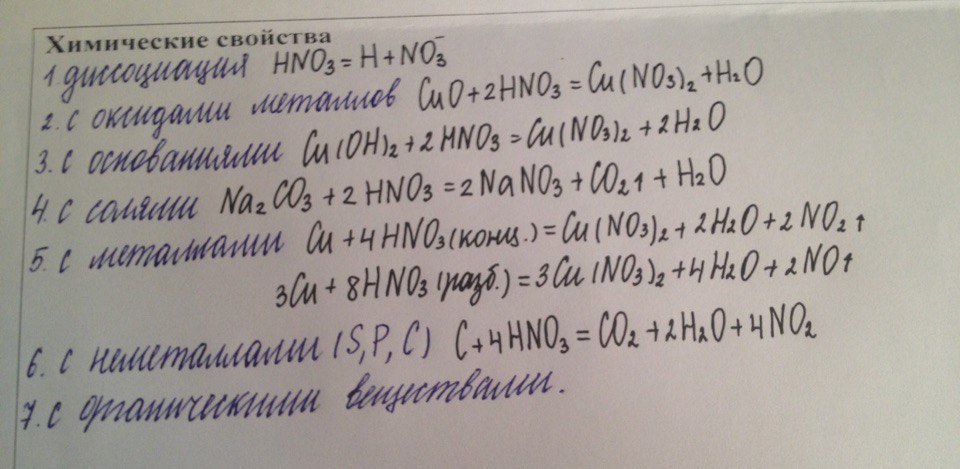 Химические свойства
1 диссоциация HNO₃ = H + NO₃⁻
2. с оксидами металлов CuO + 2HNO₃ = Cu(NO₃)₂ + H₂O
3. с основаниями Cu(OH)₂ + 2HNO₃ = Cu(NO₃)₂ + 2H₂O
4. с солями Na₂CO₃ + 2HNO₃ = 2NaNO₃ + CO₂↑ + H₂O
5. с металлами Cu + 4HNO₃(конц.) = Cu(NO₃)₂ + 2H₂O + 2NO₂↑
3Cu + 8HNO₃(разб.) = 3Cu(NO₃)₂ + 4H₂O + 2NO↑
6. с неметаллами (S, P, C) C + 4HNO₃ = CO₂ + 2H₂O + 4NO₂
7. с органическими веществами.